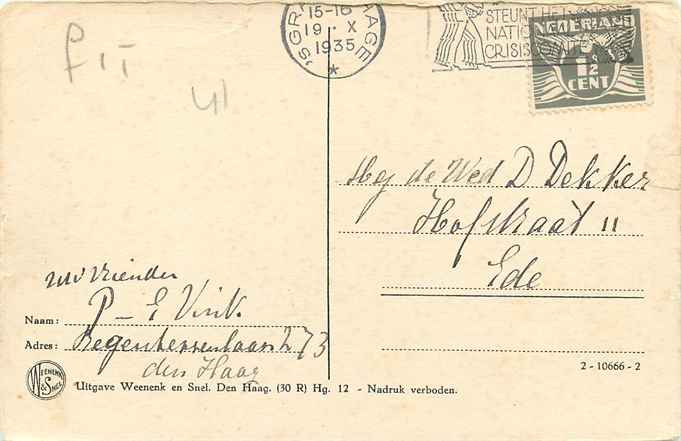 'SGRAVENHAGE
15-16
19 X
1935
STEUNT HET
NATIONAAL
CRISIS COMITE
NEDERLAND
1½
CENT
f 1
41
de Wed D Dekker
Hofstraat 11
Ede
uw vrienden
Naam: P - E Vink
Adres: Regentesselaan 273
den Haag
WEENENK & SNEL
2 - 10666 - 2
Uitgave Weenenk en Snel. Den Haag. (30 R) Hg. 12 - Nadruk verboden.